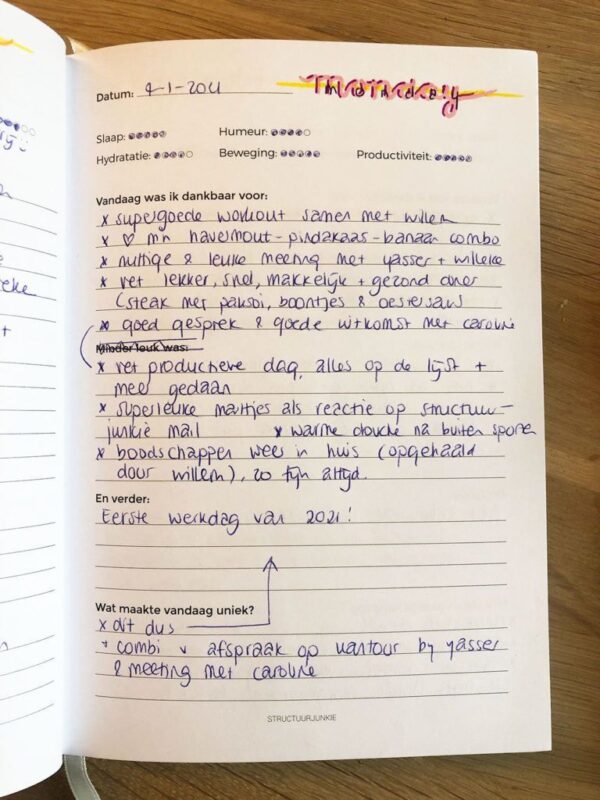 Datum: 4-1-2021 monday
Slaap: Humeur:
Hydratatie: Beweging: Productiviteit:
Vandaag was ik dankbaar voor:
x supergoede workout samen met willem
x ♡ mn havermout-pindakaas-banaan combo
x nuttige & leuke meeting met yasser + willeke
x vet lekker, snel, makkelijk + gezond diner
(steak met paksoi, boontjes & oestersaus
x goed gesprek & goede uitkomst met caroline
Minder leuk was:
x vet productieve dag, alles op de lijst +
meer gedaan
x superleuke mailtjes als reactie op structuur-
junkie mail x warme douche na buiten sporten
x boodschappen weer in huis (opgehaald
door willem), zo fijn altijd.
En verder:
Eerste werkdag van 2021!
Wat maakte vandaag uniek?
x dit dus
+ combi v afspraak op kantoor bij yasser
& meeting met caroline
STRUCTUURJUNKIE